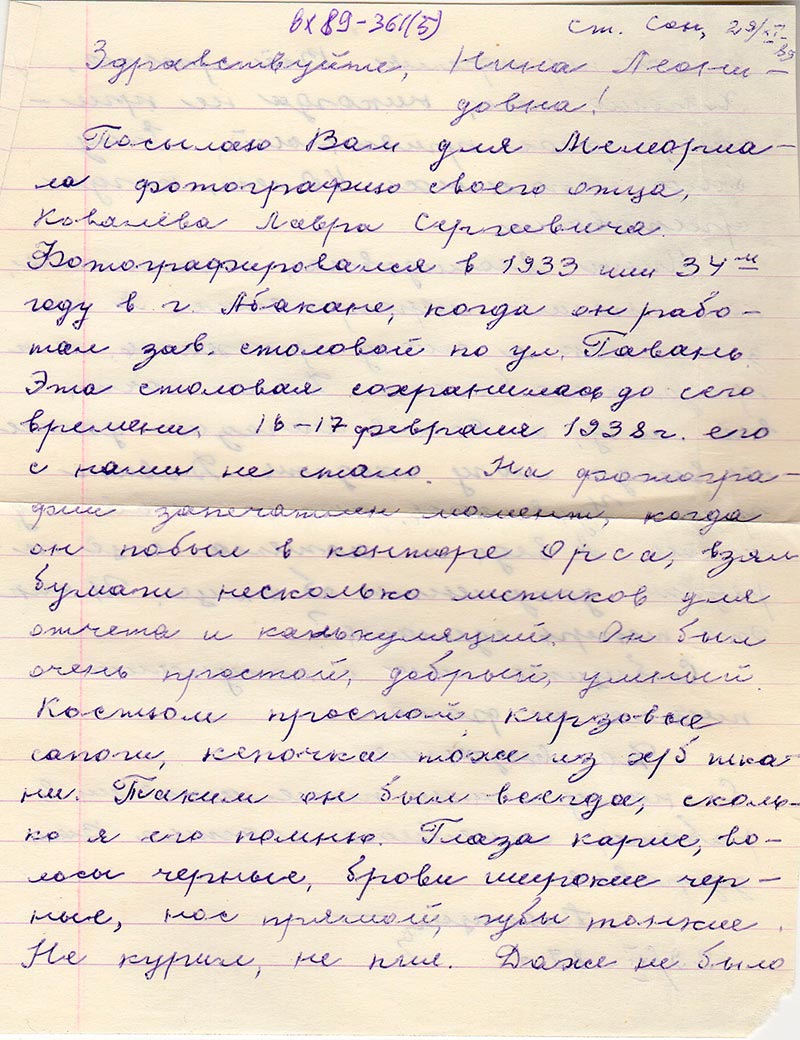 вх 89-361(5)
ст. Сон, 29/XI-89
Здравствуйте, Нина Леони-
довна!
Посылаю Вам для Мемориа-
ла фотографию своего отца,
Ковалёва Лавра Сергеевича.
Фотографировался в 1933 или 34м
году в г. Абакане, когда он рабо-
тал зав. столовой по ул. Гавань.
Эта столовая сохранилась до сего
времени. 16-17 февраля 1938 г. его
с нами не стало. На фотогра-
фии запечатлен момент, когда
он побыл в конторе Орса, взял
бумаги несколько листиков для
отчета и калькуляций. Он был
очень простой, добрый, умный.
Костюм простой, кирзовые
сапоги, кепочка тоже из х/б тка-
ни. Таким он был всегда, сколь-
ко я его помню. Глаза карие, во-
лосы черные, брови широкие чер-
ные, нос прямой, губы тонкие.
Не курил, не пил. Даже не было